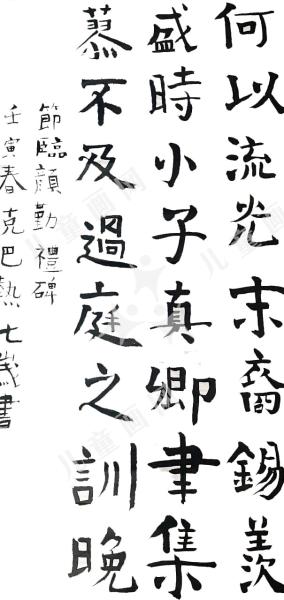 何以流光末裔錫羨
盛時小子真卿聿集
蓼不及過庭之訓晚
節臨顏勤禮碑
壬寅春克巴熱七歲書